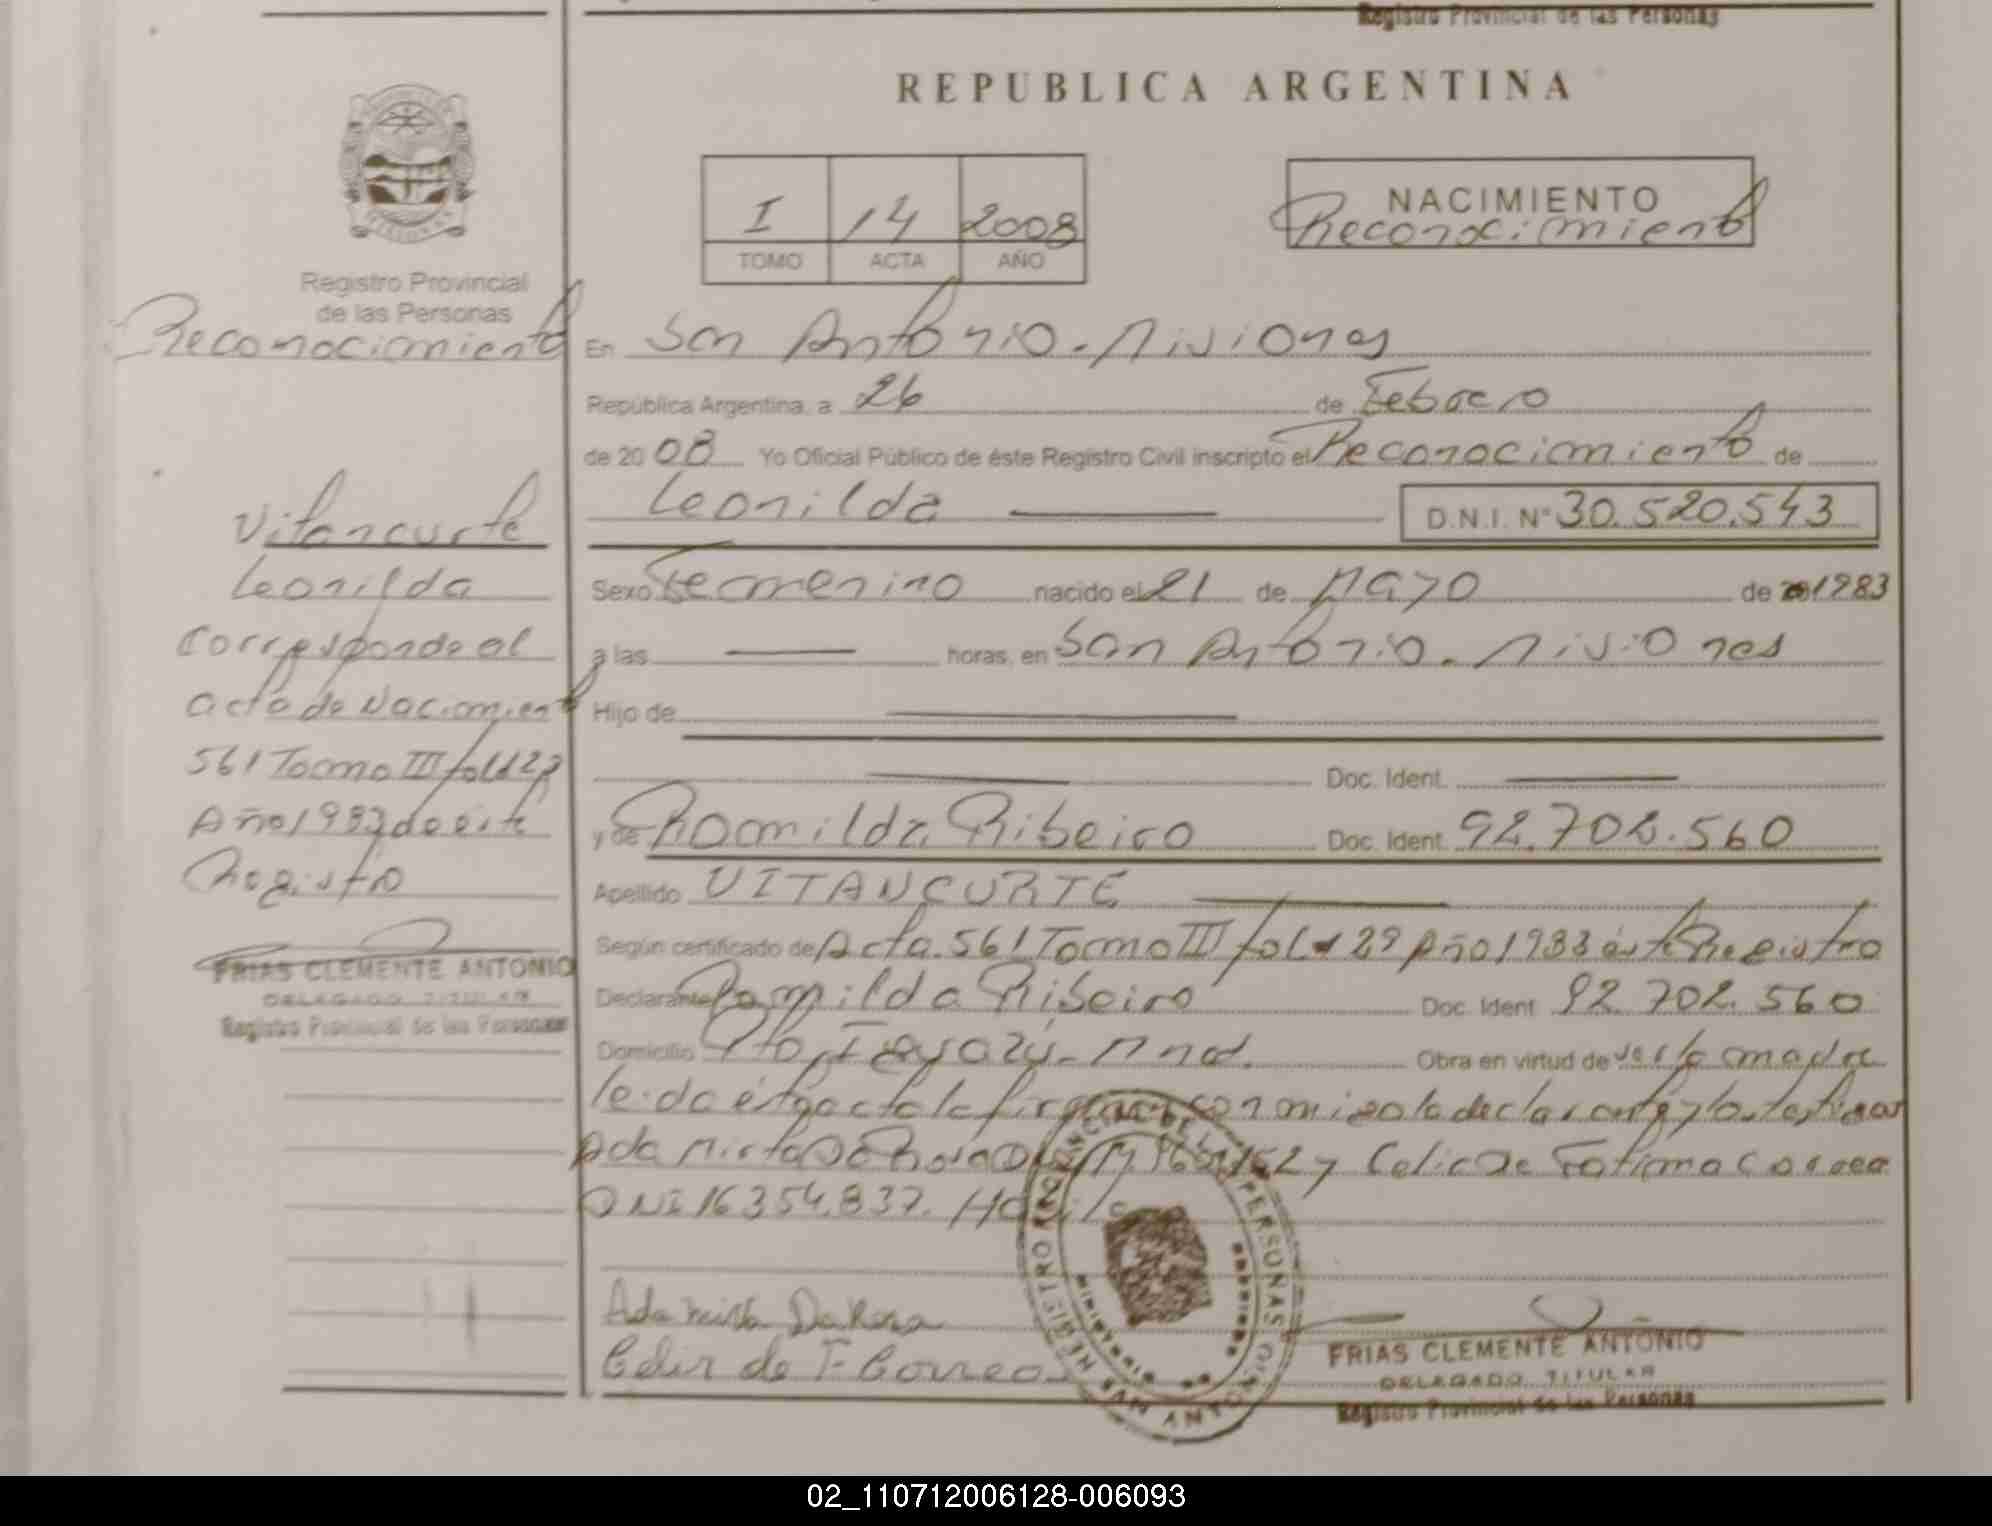 Registro Provincial de las Personas
REPUBLICA ARGENTINA
I 14 2008
TOMO ACTA AÑO
NACIMIENTO
Reconocimiento
Registro Provincial
de las Personas
Reconocimiento
Vitancurte
Leonilda
Corresponde al
acta de Nacimiento
561 Tomo III fol 129
Año 1983 de este
Registro
FRIAS CLEMENTE ANTONIO
DELEGADO TITULAR
Registro Provincial de las Personas
En San Antonio - Misiones
República Argentina, a 26 de Febrero
de 2008 Yo Oficial Público de éste Registro Civil inscripto el Reconocimiento de
Leonilda D.N.I. N° 30.520.543
Sexo Femenino nacido el 21 de Mayo de 1983
a las horas, en San Antonio - Misiones
Hijo de
Doc. Ident.
y de Romilda Ribeiro Doc. Ident. 92.702.560
Apellido VITANCURTE
Según certificado de Acta 561 Tomo III fol 129 Año 1983 éste Registro
Declarante Romilda Ribeiro Doc. Ident. 92.702.560
Domicilio Pto. Obra en virtud de ser la madre
leída ésta acta la firman conmigo la declarante y los testigos
Ada Mirta Da Rosa y Celir de Fatima Correa
DNI 16354.837.
Ada Mirta DaRosa
Celir de F. Correa
REGISTRO PROVINCIAL DE LAS PERSONAS
SAN ANTONIO
MISIONES
FRIAS CLEMENTE ANTONIO
DELEGADO TITULAR
Registro Provincial de las Personas
02_110712006128-006093